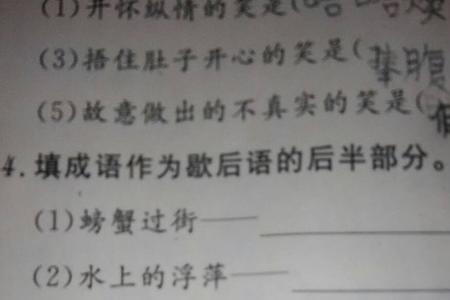 (1)开怀纵情的笑是(哈哈
(3)捂住肚子开心的笑是(捧腹
(5)故意做出的不真实的笑是(
4.填成语作为歇后语的后半部分。
(1)螃蟹过街——
(2)水上的浮萍——